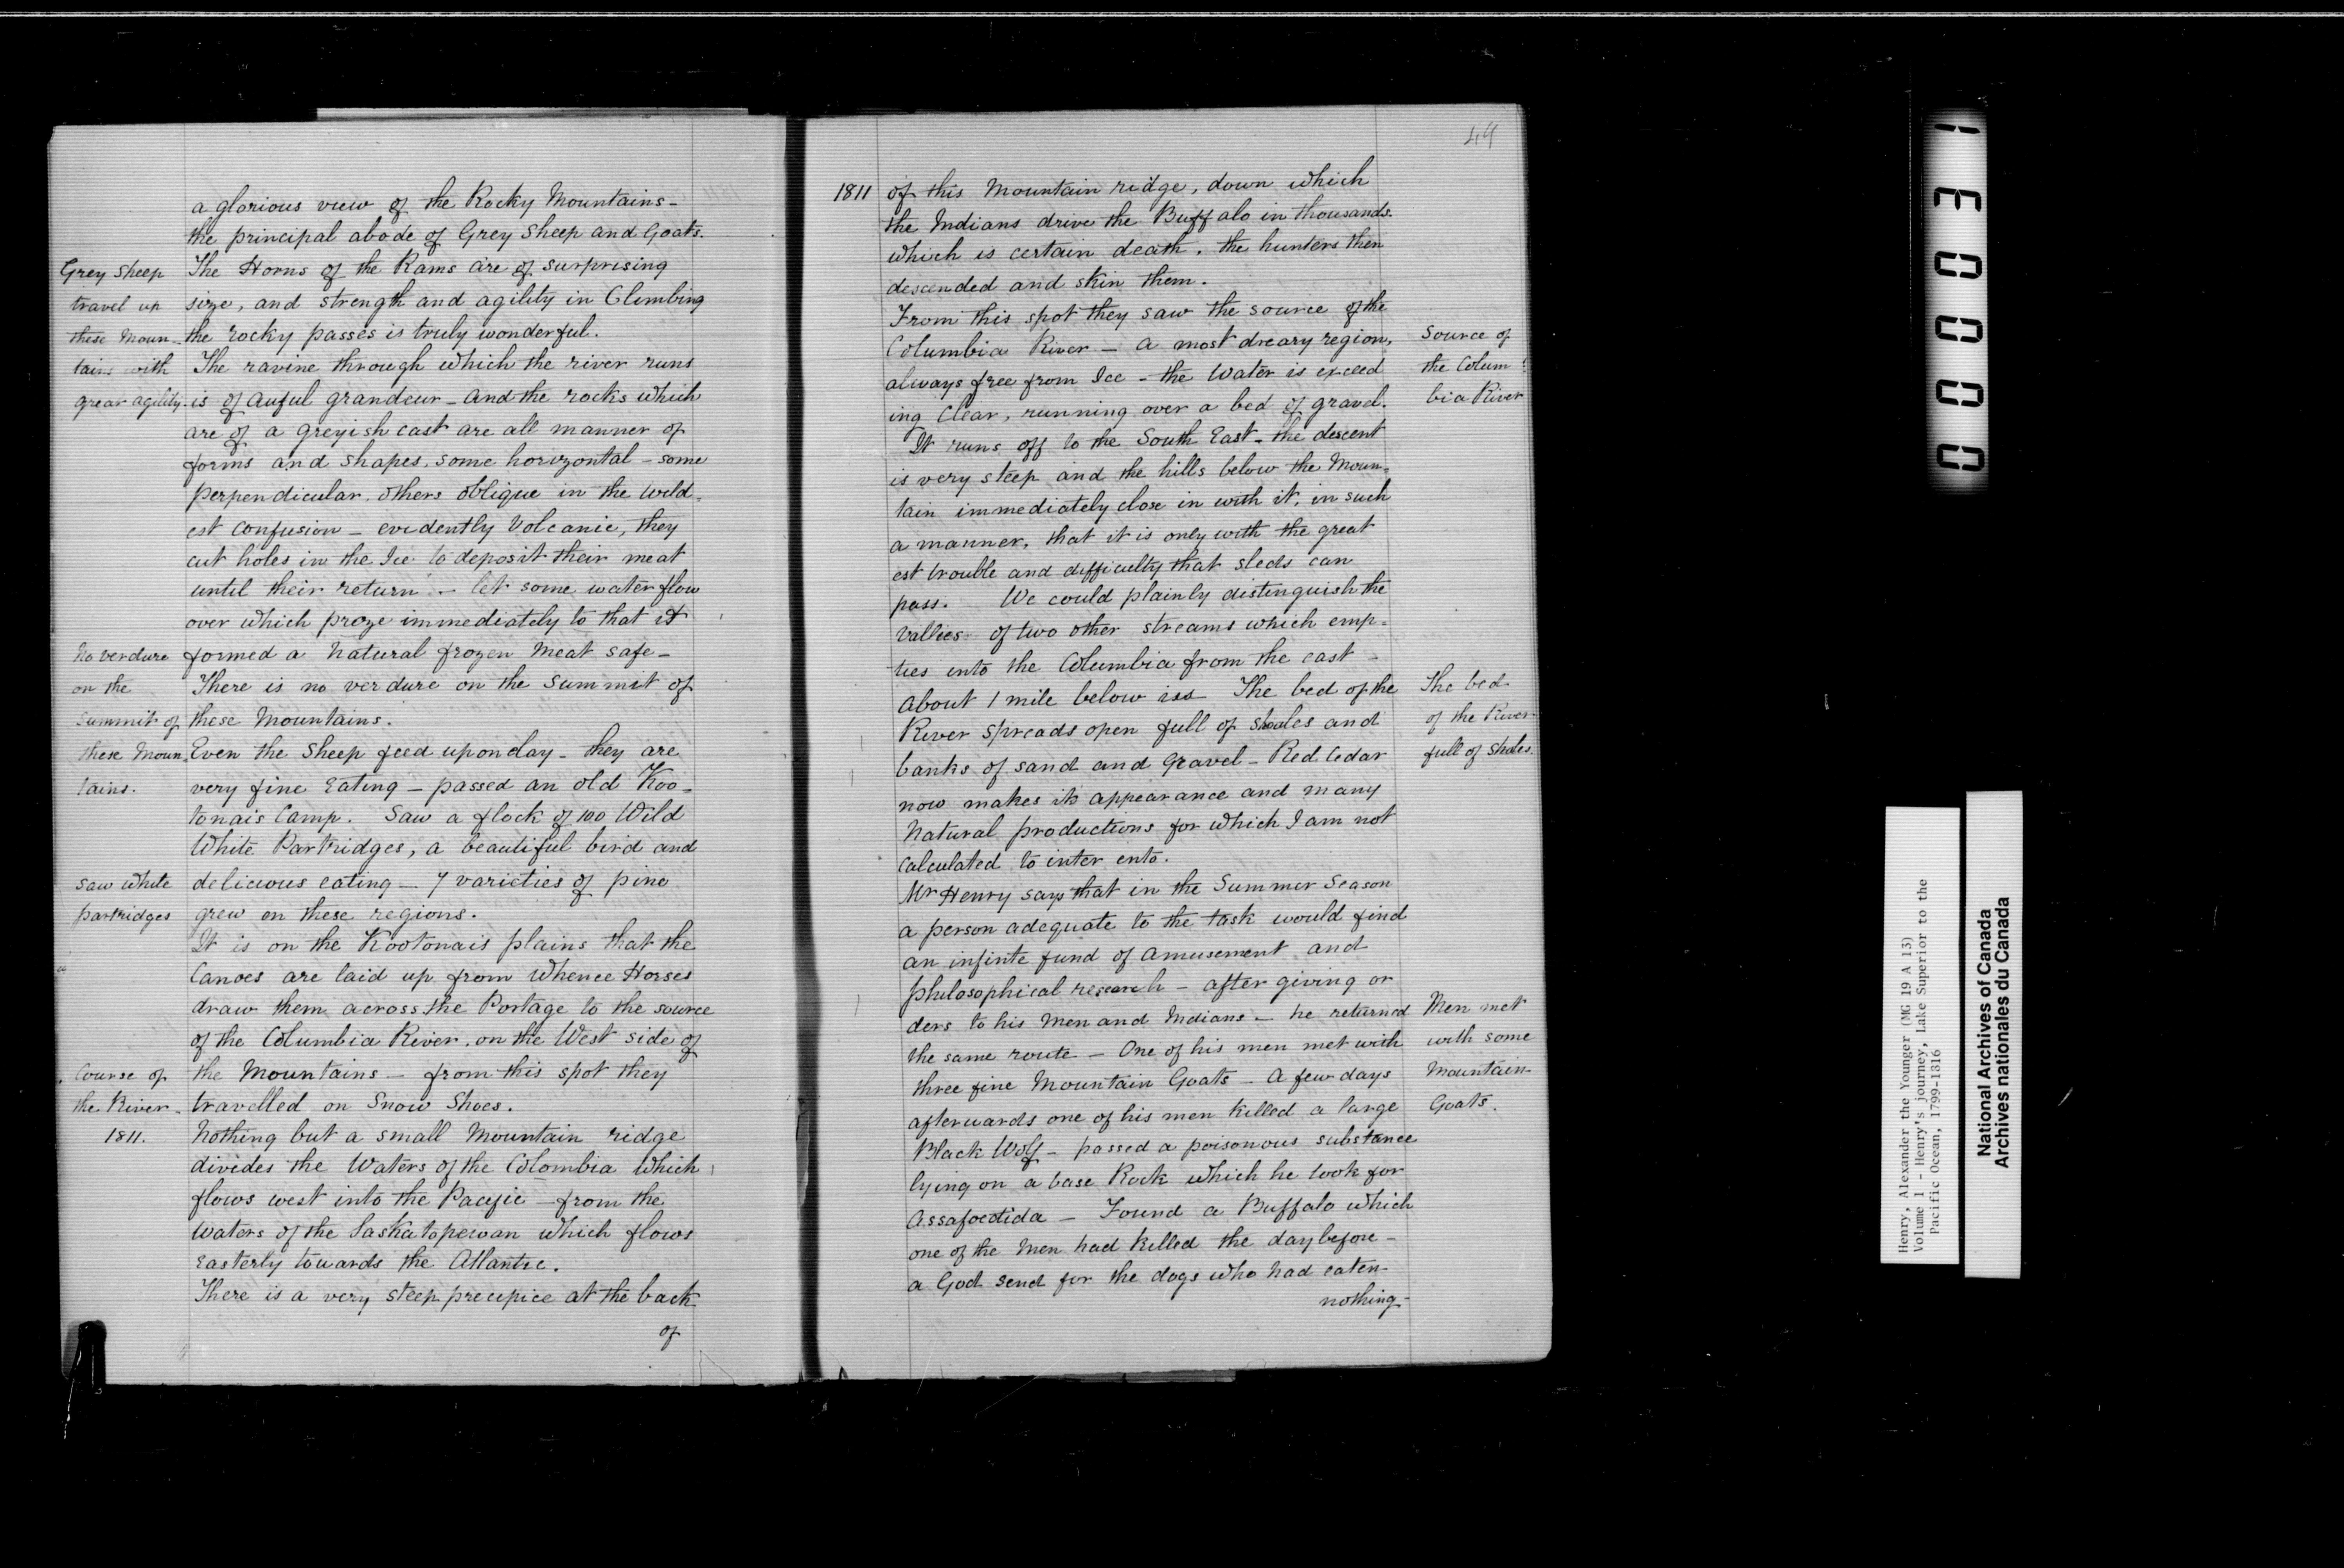 a glorious view of the Rocky Mountains -
the principal abode of Grey Sheep and Goats.
Grey Sheep
travel up
these Moun-
tains with
great agility.
The Horns of the Rams are of surprising
size, and strength and agility in Climbing
the rocky passes is truly wonderful.
The ravine through which the river runs
is of auful grandeur - and the rocks which
are of a greyish cast are all manner of
forms and shapes, some horizontal - some
perpendicular, others oblique in the wild-
est confusion - evidently Volcanic, they
cut holes in the Ice to deposit their meat
until their return - let some water flow
over which froze immediately to that it
No verdure
on the
summit of
these Moun
tains.
formed a Natural frozen Meat safe -
There is no verdure on the summit of
these Mountains.
Even the Sheep feed upon clay - they are
very fine Eating - passed an old Koo-
tonais Camp. Saw a flock of 100 Wild
White Partridges, a beautiful bird and
saw white
partridges
delicious eating - 7 varieties of pine
grew on these regions.
It is on the Kootonais plains that the
Canoes are laid up from Whence Horses
draw them across the Portage to the source
of the Columbia River, on the West side of
Course of
the River -
1811.
the Mountains - from this spot they
travelled on Snow Shoes.
Nothing but a small Mountain ridge
divides the Waters of the Colombia which
flows west into the Pacific - from the
Waters of the Saskatapewan which flows
Easterly towards the Atlantic.
There is a very steep precipice at the back
of
49
1811
of this Mountain ridge, down which
the Indians drive the Buffalo in thousands.
which is certain death. the hunters then
descended and skin them.
From this spot they saw the source of the
Columbia River - a most dreary region,
always free from Ice - the Water is exceed
ing Clear, running over a bed of gravel.
Source of
the Colum
bia River
It runs off to the South East - the descent
is very steep and the hills below the Moun-
tain immediately close in with it, in such
a manner, that it is only with the great
est trouble and difficulty that sleds can
pass. We could plainly distinguish the
Vallies of two other streams which emp-
ties into the Columbia from the east -
About 1 mile below iss The bed of the
River spreads open full of shoales and
banks of sand and Gravel - Red Cedar
The bed
of the River
full of Sholes.
now makes its appearance and many
Natural productions for which I am not
Calculated to inter into.
Mr Henry says that in the Summer Season
a person adequate to the task would find
an infinte fund of Amusement and
philosophical research - after giving or
ders to his Men and Indians - he returned
the same route - One of his men met with
three fine Mountain Goats - A few days
afterwards one of his men killed a large
Men met
with some
Mountain
Goats.
Black Wolf - passed a poisonous substance
lying on a base Rock which he took for
Assafoetida - Found a Buffalo which
one of the Men had killed the day before -
a God send for the dogs who had eaten
nothing -
000031
Henry, Alexander the Younger (MG 19 A 13)
Volume 1 - Henry's journey, Lake Superior to the
Pacific Ocean, 1799-1816
National Archives of Canada
Archives nationales du Canada